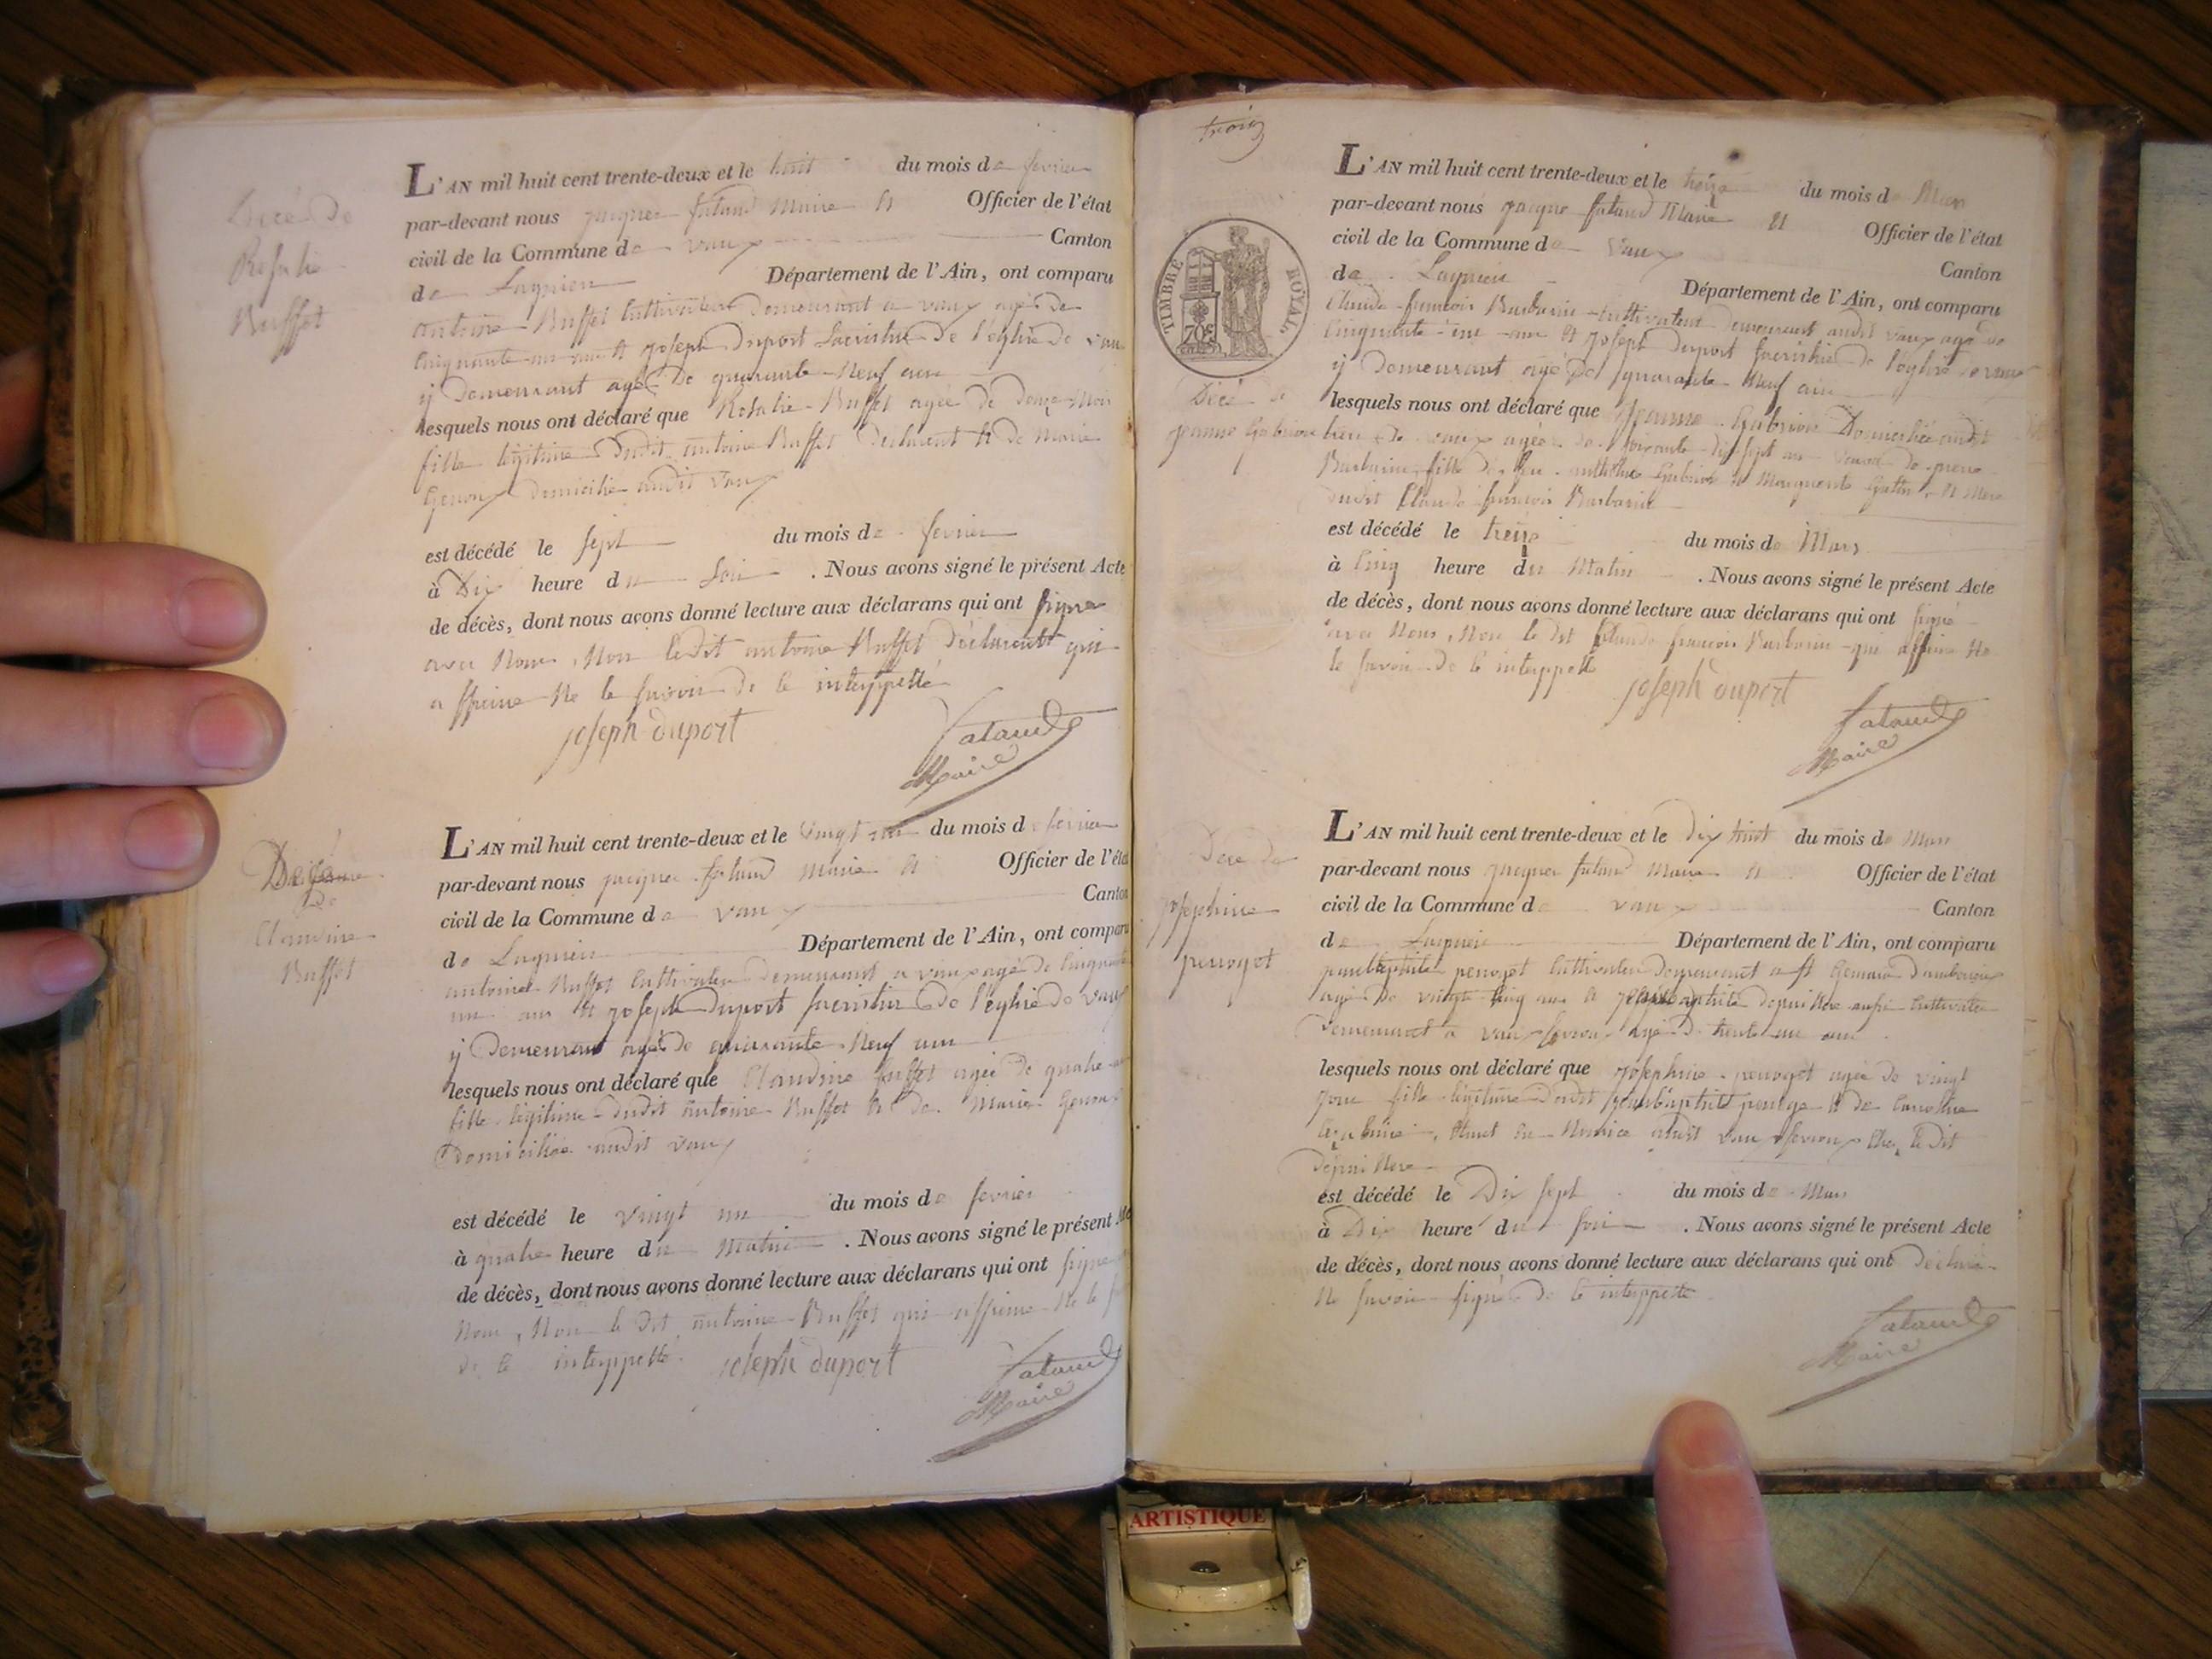 Décè de
Rosalie
Buffet
L'AN mil huit cent trente-deux et le huit du mois de fevrier
par-devant nous jacques fataud Maire et Officier de l'état
civil de la Commune de vaux Canton
de Lagnieu Département de l'Ain, ont comparu
antoine Buffet Cultivateur demeurant a vaux agé de
Cinquante un ans et joseph duport Sacristin de l'église de vaux
y demeurant agé de quarante Neuf ans
lesquels nous ont déclaré que Rosalie Buffet agée de douze Mois
fille légitime dudit antoine Buffet déclarent et de Marie
Genoux domicilié audit vaux
est décédé le sept du mois de fevrier
à Dix heure du Soir . Nous avons signé le présent Acte
de décès, dont nous avons donné lecture aux déclarans qui ont signé
avec Nous, Non ledit antoine Buffet déclarent qui
affirme Ne le savoir de ce interppellé
joseph duport
fataud
Maire
Décé
de
Claudine
Buffet
L'AN mil huit cent trente-deux et le vingt un du mois de fevrier
par-devant nous jacques fataud Maire et Officier de l'état
civil de la Commune de vaux Canton
de Lagnieu Département de l'Ain, ont comparu
antoine Buffet Cultivateur demeurant a vaux agé de Cinquante
un ans et joseph Duport sacristin de l'église de vaux
y demeurant agé de quarante Neuf ans
lesquels nous ont déclaré que Claudine buffet agée de quatre
fille légitime dudit antoine Buffet et de Marie Genoux
Domiciliée audit vaux
est décédé le vingt un du mois de fevrier
à quatre heure du Matin . Nous avons signé le présent
de décès, dont nous avons donné lecture aux déclarans qui ont signé
Nous, Non le dit antoine Buffet qui affirme Ne le
de ce interppellé joseph duport
fataud
Maire
trois
TIMBRE ROYAL
70c
Décé de
jeanne Gabrion
L'AN mil huit cent trente-deux et le treize du mois de Mars
par-devant nous jacque fataud Maire et Officier de l'état
civil de la Commune de vaux Canton
de Lagnieu Département de l'Ain, ont comparu
Claude françois Barbarin Cultivateur demeurant audit vaux agé de
Cinquante ans et joseph duport sacristin de l'église de vaux
y demeurant agé de quarante Neuf ans
lesquels nous ont déclaré que jeanne Gabrion Domiciliée audit
lieu de vaux agée de soixante dix sept ans veuve de
Barbarin, fille de feu Gabrion et Marguerite et Mere
dudit Claude françois Barbarin
est décédé le treize du mois de Mars
à Cinq heure du Matin . Nous avons signé le présent Acte
de décès, dont nous avons donné lecture aux déclarans qui ont signé
avec Nous, Non le dit Claude françois Barbarin qui affirme Ne
le savoir de ce interppellé
joseph duport
fataud
Maire
Décé de
josephine
perroget
L'AN mil huit cent trente-deux et le dix huit du mois de Mars
par-devant nous jacques fataud Maire et Officier de l'état
civil de la Commune de vaux Canton
de Lagnieu Département de l'Ain, ont comparu
perroget Cultivateur demeurant a st
agé de vingt Cinq ans et aussi Cultivateur
demeurant a vaux agé de trente un ans
lesquels nous ont déclaré que josephine perroget agée de vingt
jour fille légitime dudit et de Caroline
en Nourice audit vaux chez le dit
est décédé le Dix sept du mois de Mars
à Dix heure du soir . Nous avons signé le présent Acte
de décès, dont nous avons donné lecture aux déclarans qui ont déclaré
Ne savoir signé de ce interppellé
fataud
Maire
ARTISTIQUE